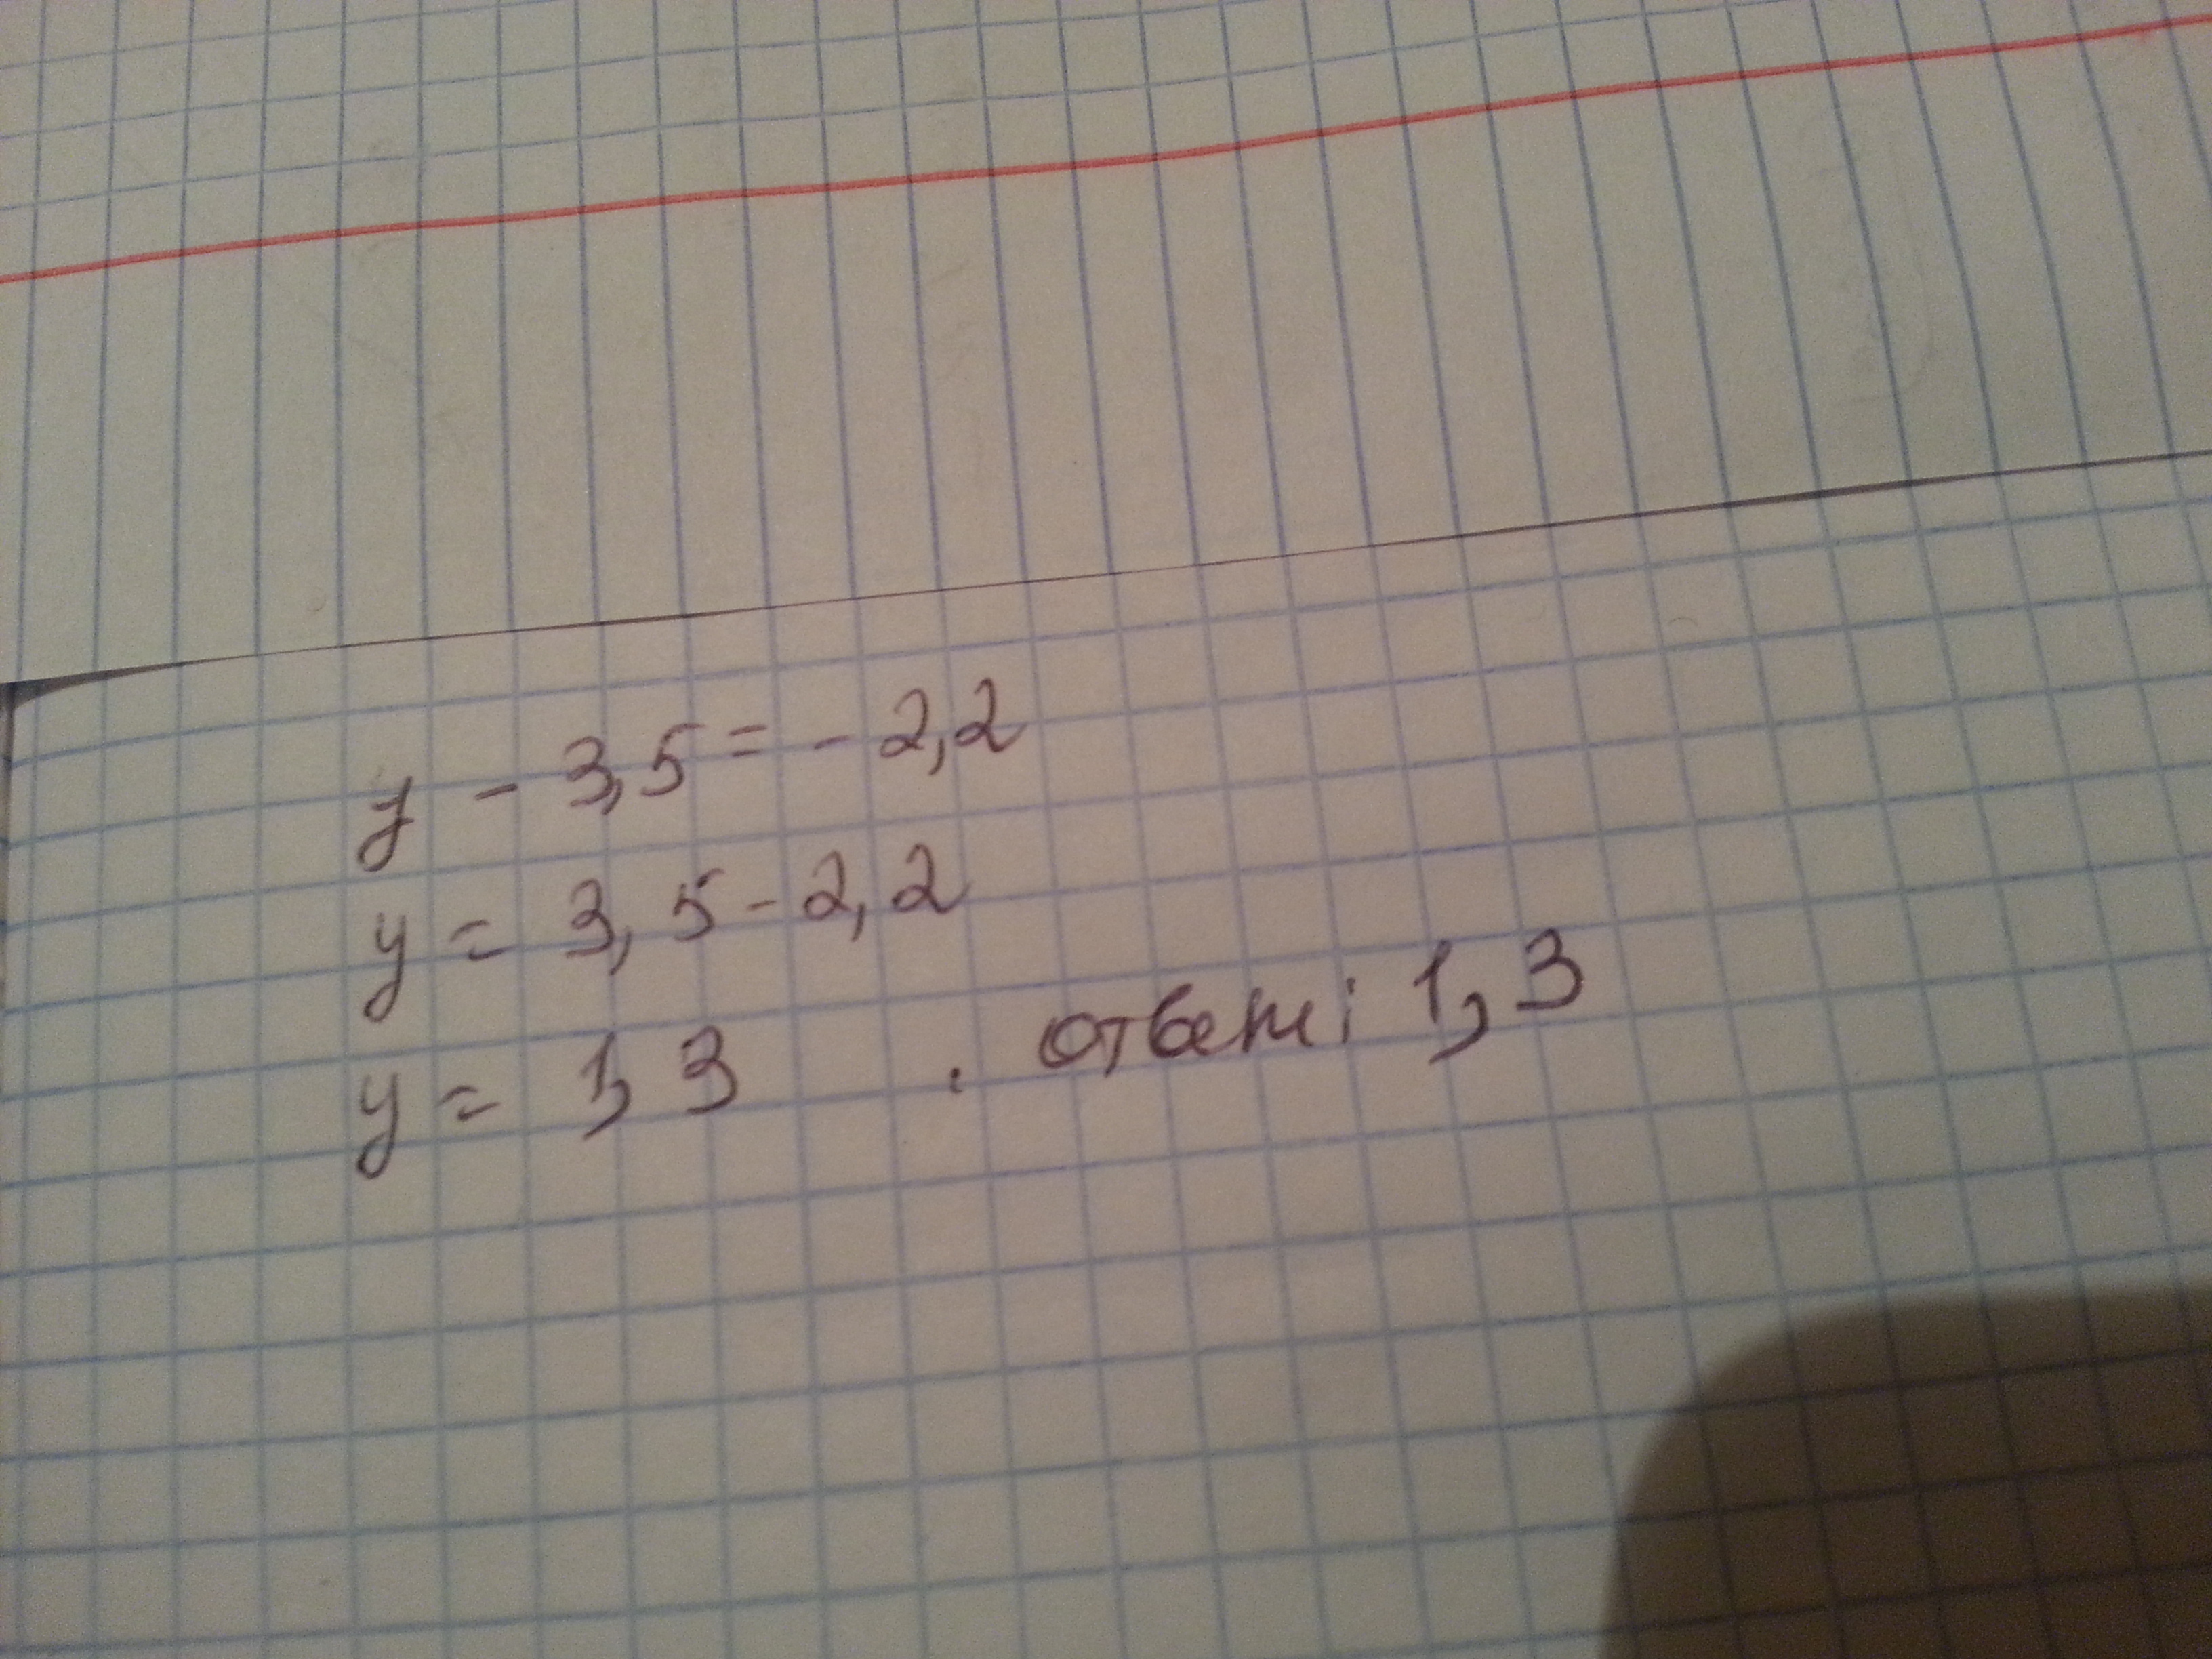 y - 3,5 = - 2,2
y = 3,5 - 2,2
y = 1,3 . ответ: 1,3